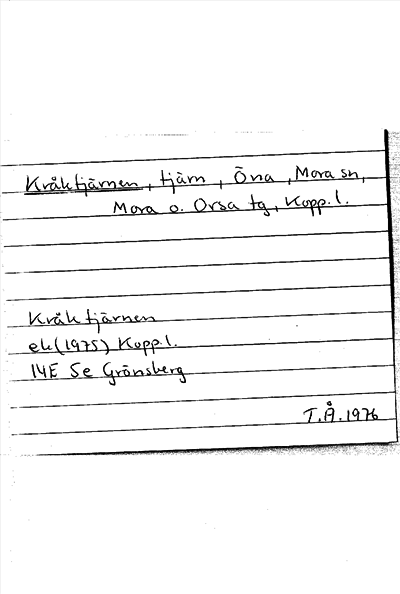 Kråktjärnen, tjärn, Öna, Mora sn,
Mora o. Orsa tg, Kopp.l.
Kråktjärnen
ek (1975) Kopp.l.
14E 5e Grönsberg
T.Å. 1976